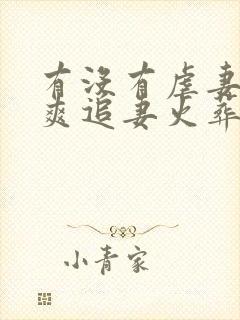 有没有虐妻
爽追妻火葬
小青家